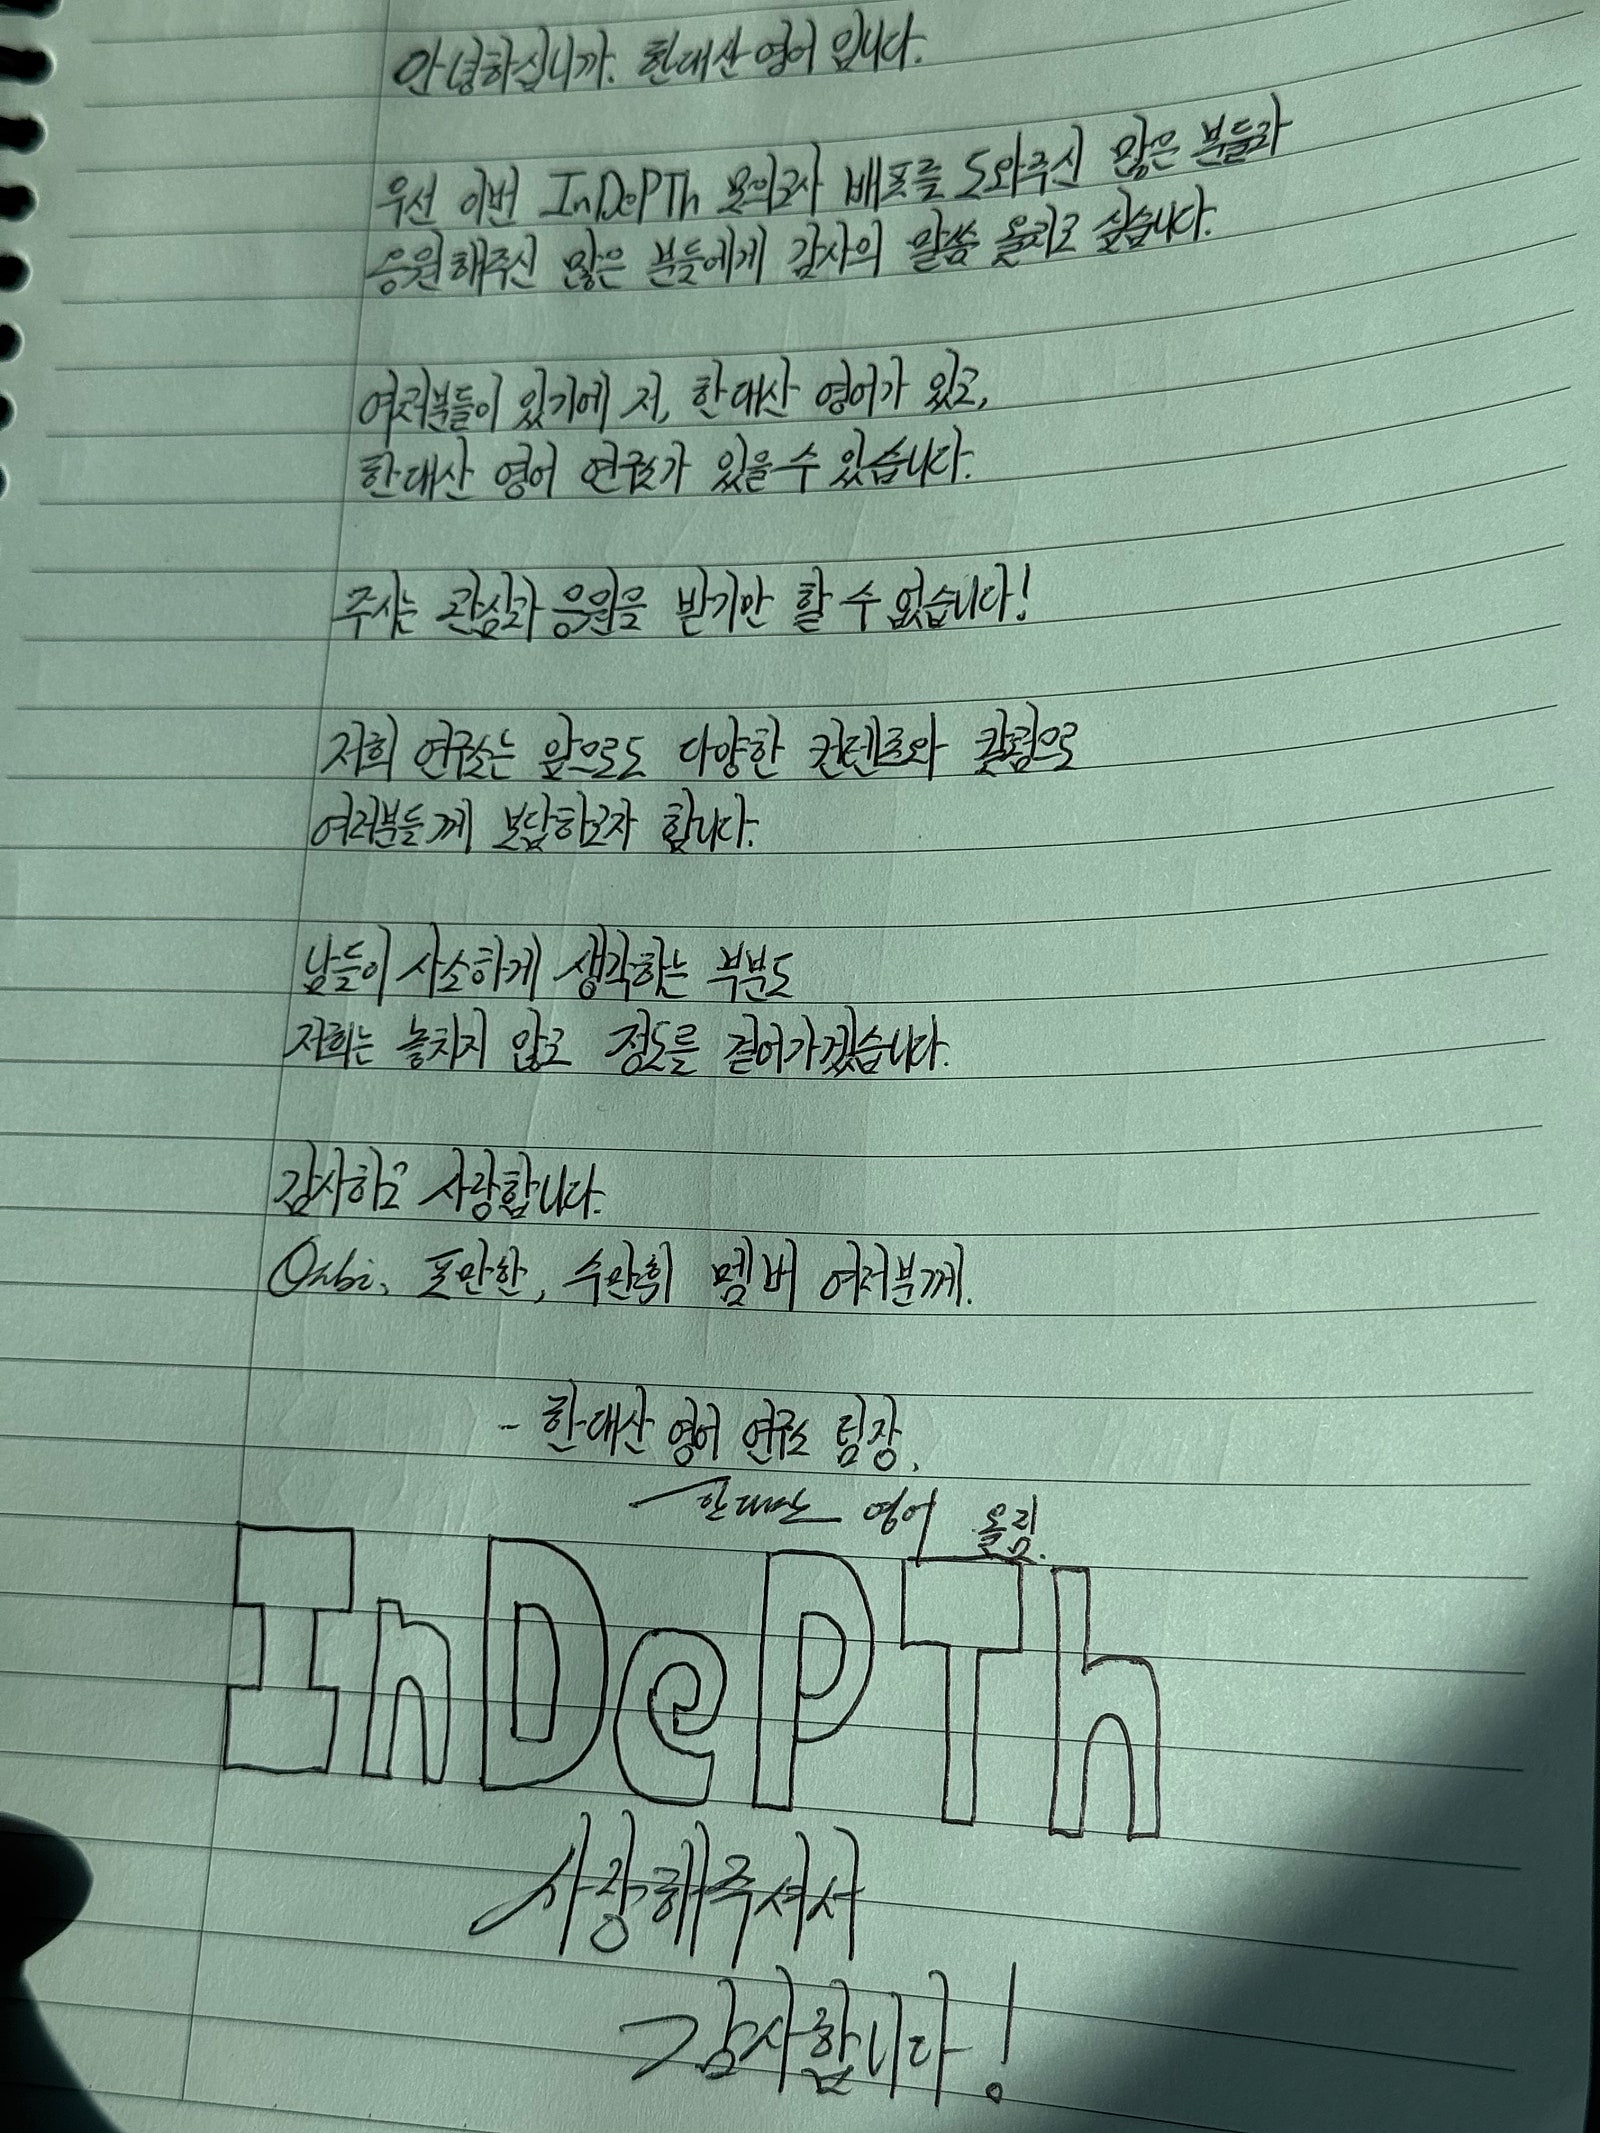 안녕하십니까. 한대산 영어 입니다.
우선 이번 InDePTh 모의고사 배포를 도와주신 많은 분들과
응원해주신 많은 분들에게 감사의 말씀 올리고 싶습니다.
여러분들이 있기에 저, 한대산 영어가 있고,
한대산 영어 연구소가 있을 수 있습니다.
주시는 관심과 응원을 받기만 할 수 없습니다!
저희 연구소는 앞으로도 다양한 컨텐츠와 칼럼으로
여러분들께 보답하고자 합니다.
남들이 사소하게 생각하는 부분도
저희는 놓치지 않고 정도를 걸어가겠습니다.
감사하고 사랑합니다.
Orbi, 포만한, 수만휘 멤버 여러분께.
- 한대산 영어 연구소 팀장,
한대산 영어 올림.
InDePTh
사랑해주셔서
감사합니다!